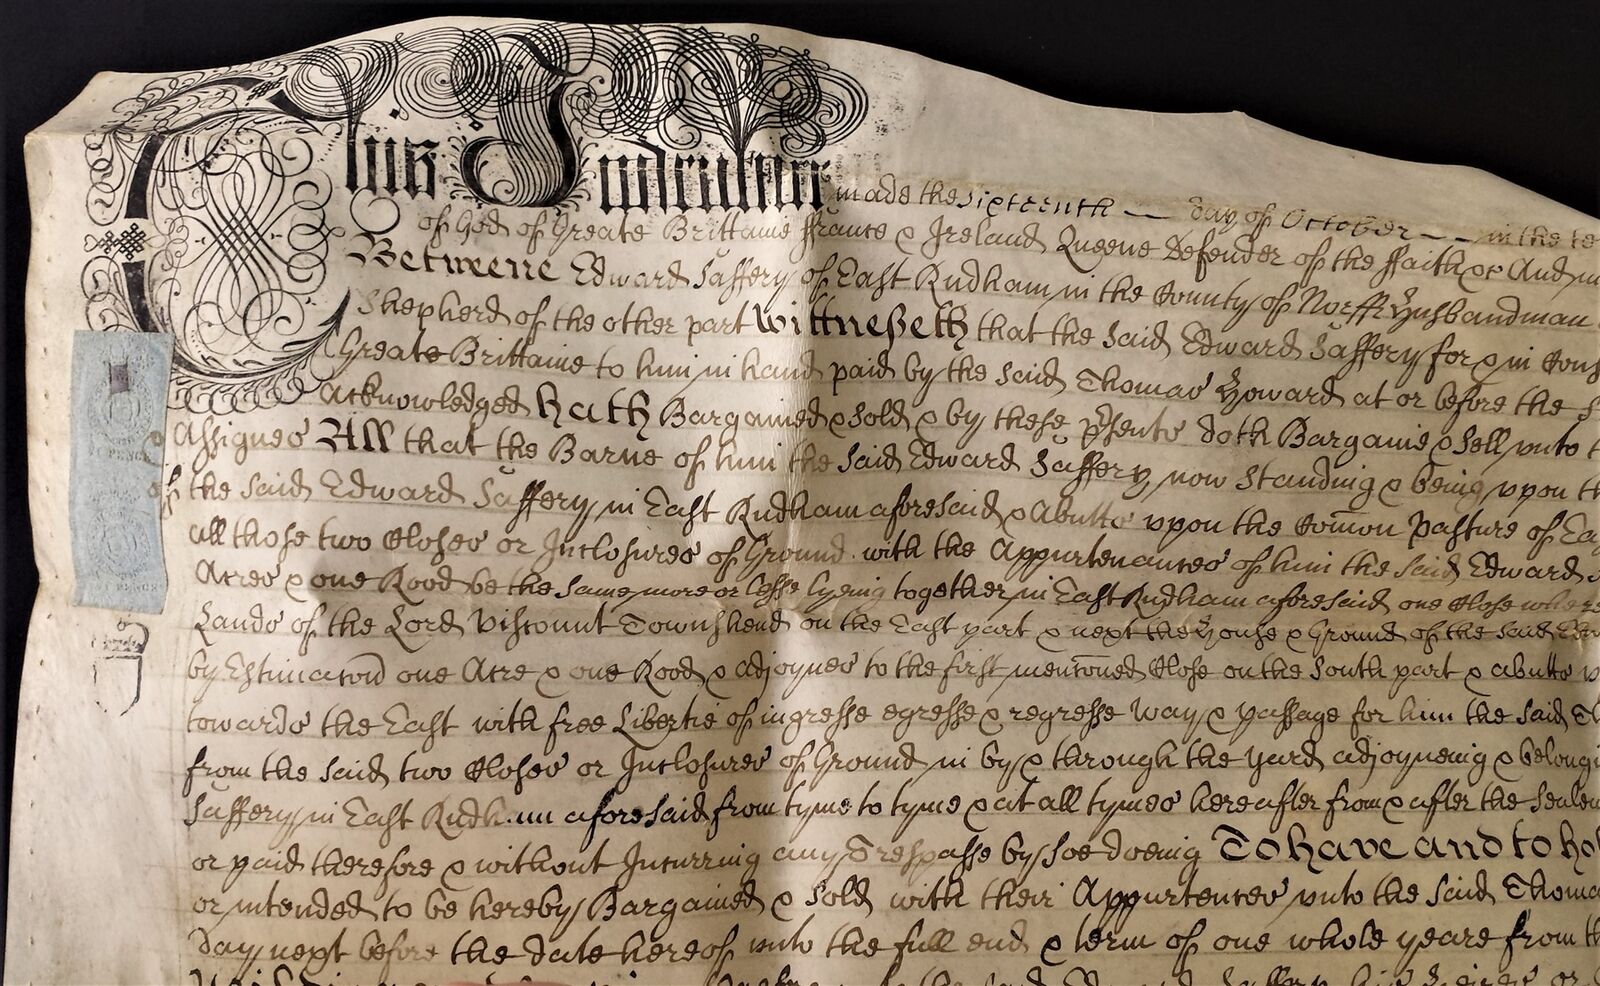 This Indenture made the sixteenth day of October in the te
of God of Greate Brittaine ffrance & Ireland Queene Defender of the ffaith &c And in
Betweene Edward Saffery of East Rudham in the County of Norff Husbandman
Shepherd of the other part Wittnesseth that the said Edward Saffery for & in Cons
Greate Brittaine to him in hand paid by the said Thomas Howard at or before the S
Acknowledged Hath Bargained & sold & by these p'sents doth Bargaine & sell unto t
Assignes All that the Barne of him the said Edward Saffery now standing & being upon th
of the said Edward Saffery in East Rudham aforesaid & Abutts upon the Com̄on Pasture of Ea
all those two Closes or Inclosures of Ground with the Appurtenances of him the said Edward S
Acres & one Rood be the same more or lesse lyeing together in East Rudham aforesaid one Close where
Lands of the Lord Viscount Townshend on the East part & next the House & Ground of the said Edw
by Estimacōn one Acre & one Rood & adjoynes to the first menc̄oned Close on the South part & abutts u
towards the East with free Libertie of ingresse egresse & regresse way & passage for him the said Th
from the said two Closes or Inclosures of Ground in by & through the yard adjoyneing & belongi
Saffery in East Rudham aforesaid from tyme to tyme & at all tymes hereafter from & after the Sealein
or paid therefore & without Incurring any Trespasse by soe doeing To have and to hol
or intended to be hereby Bargained & sold with their Appurtences unto the said Thoma
day next before the date hereof unto the full end & term of one whole yeare from th